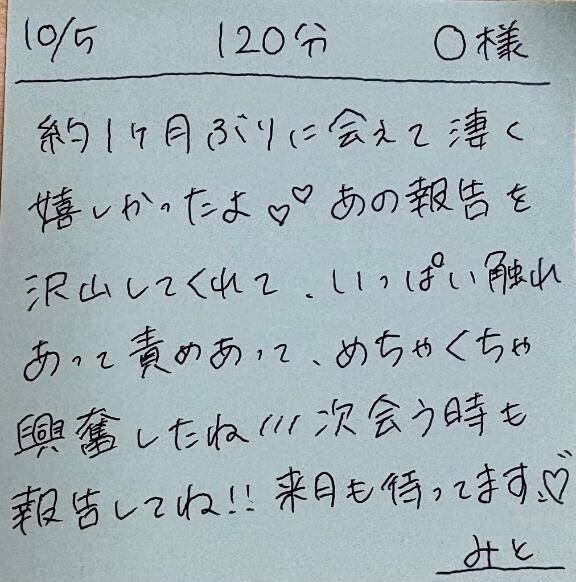 10/5 120分 O様
約1ヶ月ぶりに会えて凄く
嬉しかったよ♡♡ あの報告を
沢山してくれて、いっぱい触れ
あって責めあって、めちゃくちゃ
興奮したね/// 次会う時も
報告してね!! 来月も待ってます♡
みと